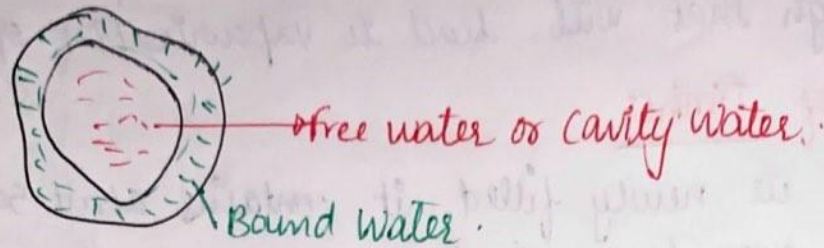 free water or cavity water.
Bound water.